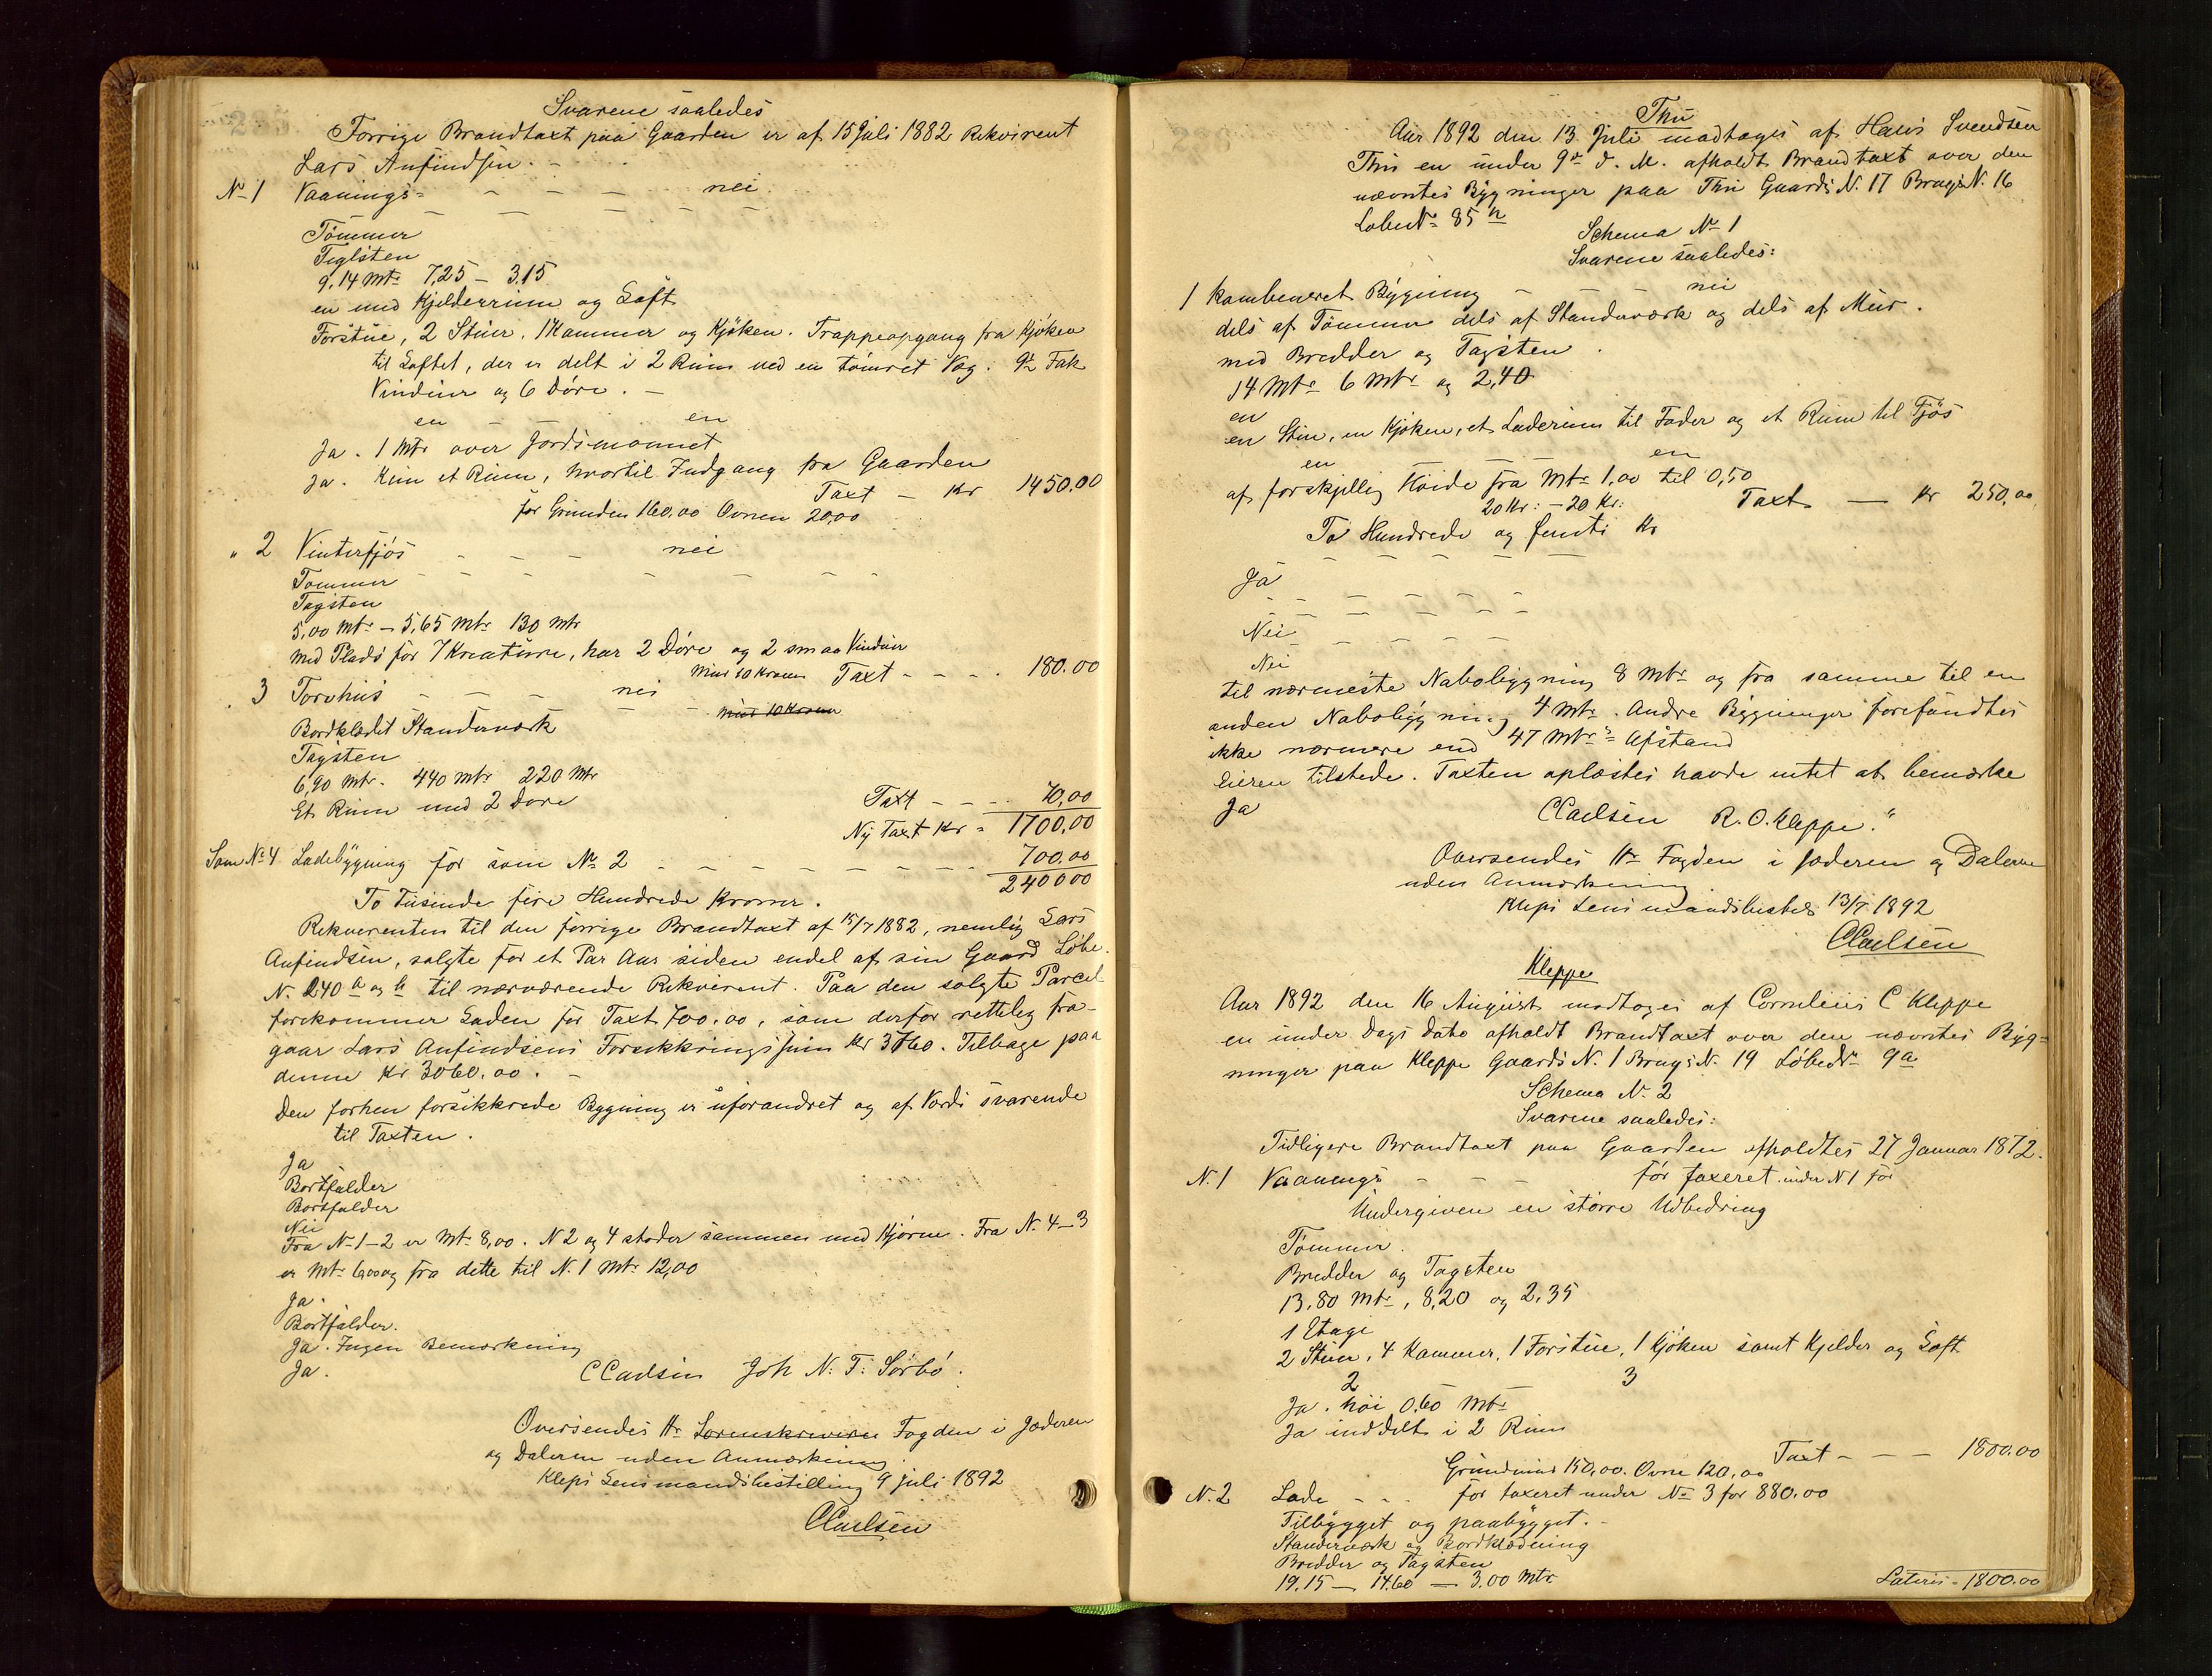 Svarene saaledes
Forrige Brandtaxt paa Gaarden er af 15 juli 1882 Rekvirent
Lars Anfindsen.
No 1 Vaanings- - - - nei
Tömmer
Teglsten
9,14 Mtr 7,25 - 3.15
en med Kjelderrum og Loft
Forstue, 2 Stuer, 1 Kammer og Kjöken. Trappeopgang fra Kjöken
til Loftet, der er delt i 2 Rum ved en tömret Væg. 9½ Fak
Vinduer og 6 Döre. -
en en
Ja. 1 Mtr over Jordsmonnet
Ja. Kun et Rum, hvortil Indgang fra Gaarden
Taxt - Kr 1450.00
for Grunden 160,00 Ovnen 20,00
" 2 Vinterfjös - - - nei
Tømmer
Tagsten
5,00 Mtr - 5,65 Mtr 130 Mtr
med Plads for 7 Kreature, har 2 Döre og 2 smaa Vinduer
Mur 10 Kroner Taxt - - - 180.00
" 3 Torvhus - - - nei
Mur 10 Kroner
Bordklædt Standerværk
Tagsten
6,90 Mtr. 440 Mtr 220 Mtr
Et Rum med 2 Døre
Taxt - - - 70,00
Ny Taxt Kr = 1700,00
Som No 4 Ladebygning før som No 2 - - - 700.00
2400 00
To Tusinde fire Hundrede Kroner.
Rekvirenten til den forrige Brandtaxt af 15/7 1882, nemlig Lars
Anfindsen, solgte for et Par Aar siden endel af sin Gaard Löbe
N. 240 a og b til nærværende Rekvirent. Paa den solgte Parcel
forekommer Laden för Taxt 700.00, som derfor rettelig fra-
gaar Lars Anfindsens Forsikkringssum Kr 3760. Tilbage paa
denne Kr. 3060.00. -
Den forhen forsikkrede Bygning er uforandret og af Værdi svarende
til Taxten.
Ja
Bortfalder
Bortfalder
Nei
Fra No 1-2 er Mtr 8,00. N 2 og 4 støder sammen med Hjørne. Fra N. 4-3
er Mtr 6,00 og fra dette til N. 1 Mtr 12,00
Ja.
Bortfalder.
Ja. Ingen Bemærkning
Ja.
CCarlsen Joh N. T. Sörbö.
Oversendes Hr Sorenskriveren Fogden i Jæderen
og Dalerne uden Anmærkning.
Kleps Lensmandsbestilling 9 juli 1892
CCarlsen
Thu
Aar 1892 den 13. Juli modtoges af Hans Svendsen
Thu en under 9de d. M. afholdt Brandtaxt over den
nævntes Bygninger paa Thu Gaards N. 17 Brugs N. 16
Løbe No 85 b
Schema No 1
Svarene saaledes:
1 kombeneret Bygning - - - nei
dels af Tömmer dels af Standerværk og dels af Mur.
med Bredder og Tagsten.
14 Mtr 6 Mtr og 2,40
en
en Stue, en Kjöken, et Laderum til Foder og et Rum til Fjös
en en
af forskjellig Höide fra Mtr 1,00 til 0,50
20 Kr: - 20 Kr: Taxt - Kr 250,00
To Hundrede og femti Kr
Ja
Nei
Nei
til nærmeste Nabobygning 8 Mtr og fra samme til en
anden Nabobygning 4 Mtr. Andre Bygninger forefandtes
ikke nærmere end 47 Mtrs Afstand
Eieren tilstede. Taxten oplæstes havde intet at bemærke
Ja
CCarlsen R. O. Kleppe."
Oversendes Hr Fogden i Jæderen og Dalerne
uden Anmærkning.
Kleps Lensmandsbest. 13/7 1892
CCarlsen
Kleppe
Aar 1892 den 16 August modtoges af Cornelius C Kleppe
en under Dags Dato afholdt Brandtaxt over den nævntes Byg-
ninger paa Kleppe Gaards N. 1 Brugs N. 19 Løbe No 9a
Schema N. 2
Svarene saaledes:
Tidligere Brandtaxt paa Gaarden afholdtes 27 Januar 1872.
N. 1 Vaanings - - - før taxeret under N 1 for
Undergiven en större Udbedring
Tømmer.
Bredder og Tagsten
13,80 Mtr, 8,20 og 2,35
1 Etage
2 Stuer, 4 Kammer, 1 Forstue, 1 Kjöken samt Kjelder og Loft
2 3
Ja. höi 0,60 Mtr
Ja inddelt i 2 Rum
Taxt - - - 1800.00
Grundmur 150,00. Ovne 120,00
N. 2 Lade - - før taxeret under No 3 for 880.00
Tilbygget og paabygget. -
Standerværk og Bordklædning
Bredder og Tagsten
19,15 - 14.60 - 3.00 Mtr
Lateris - 1800.00